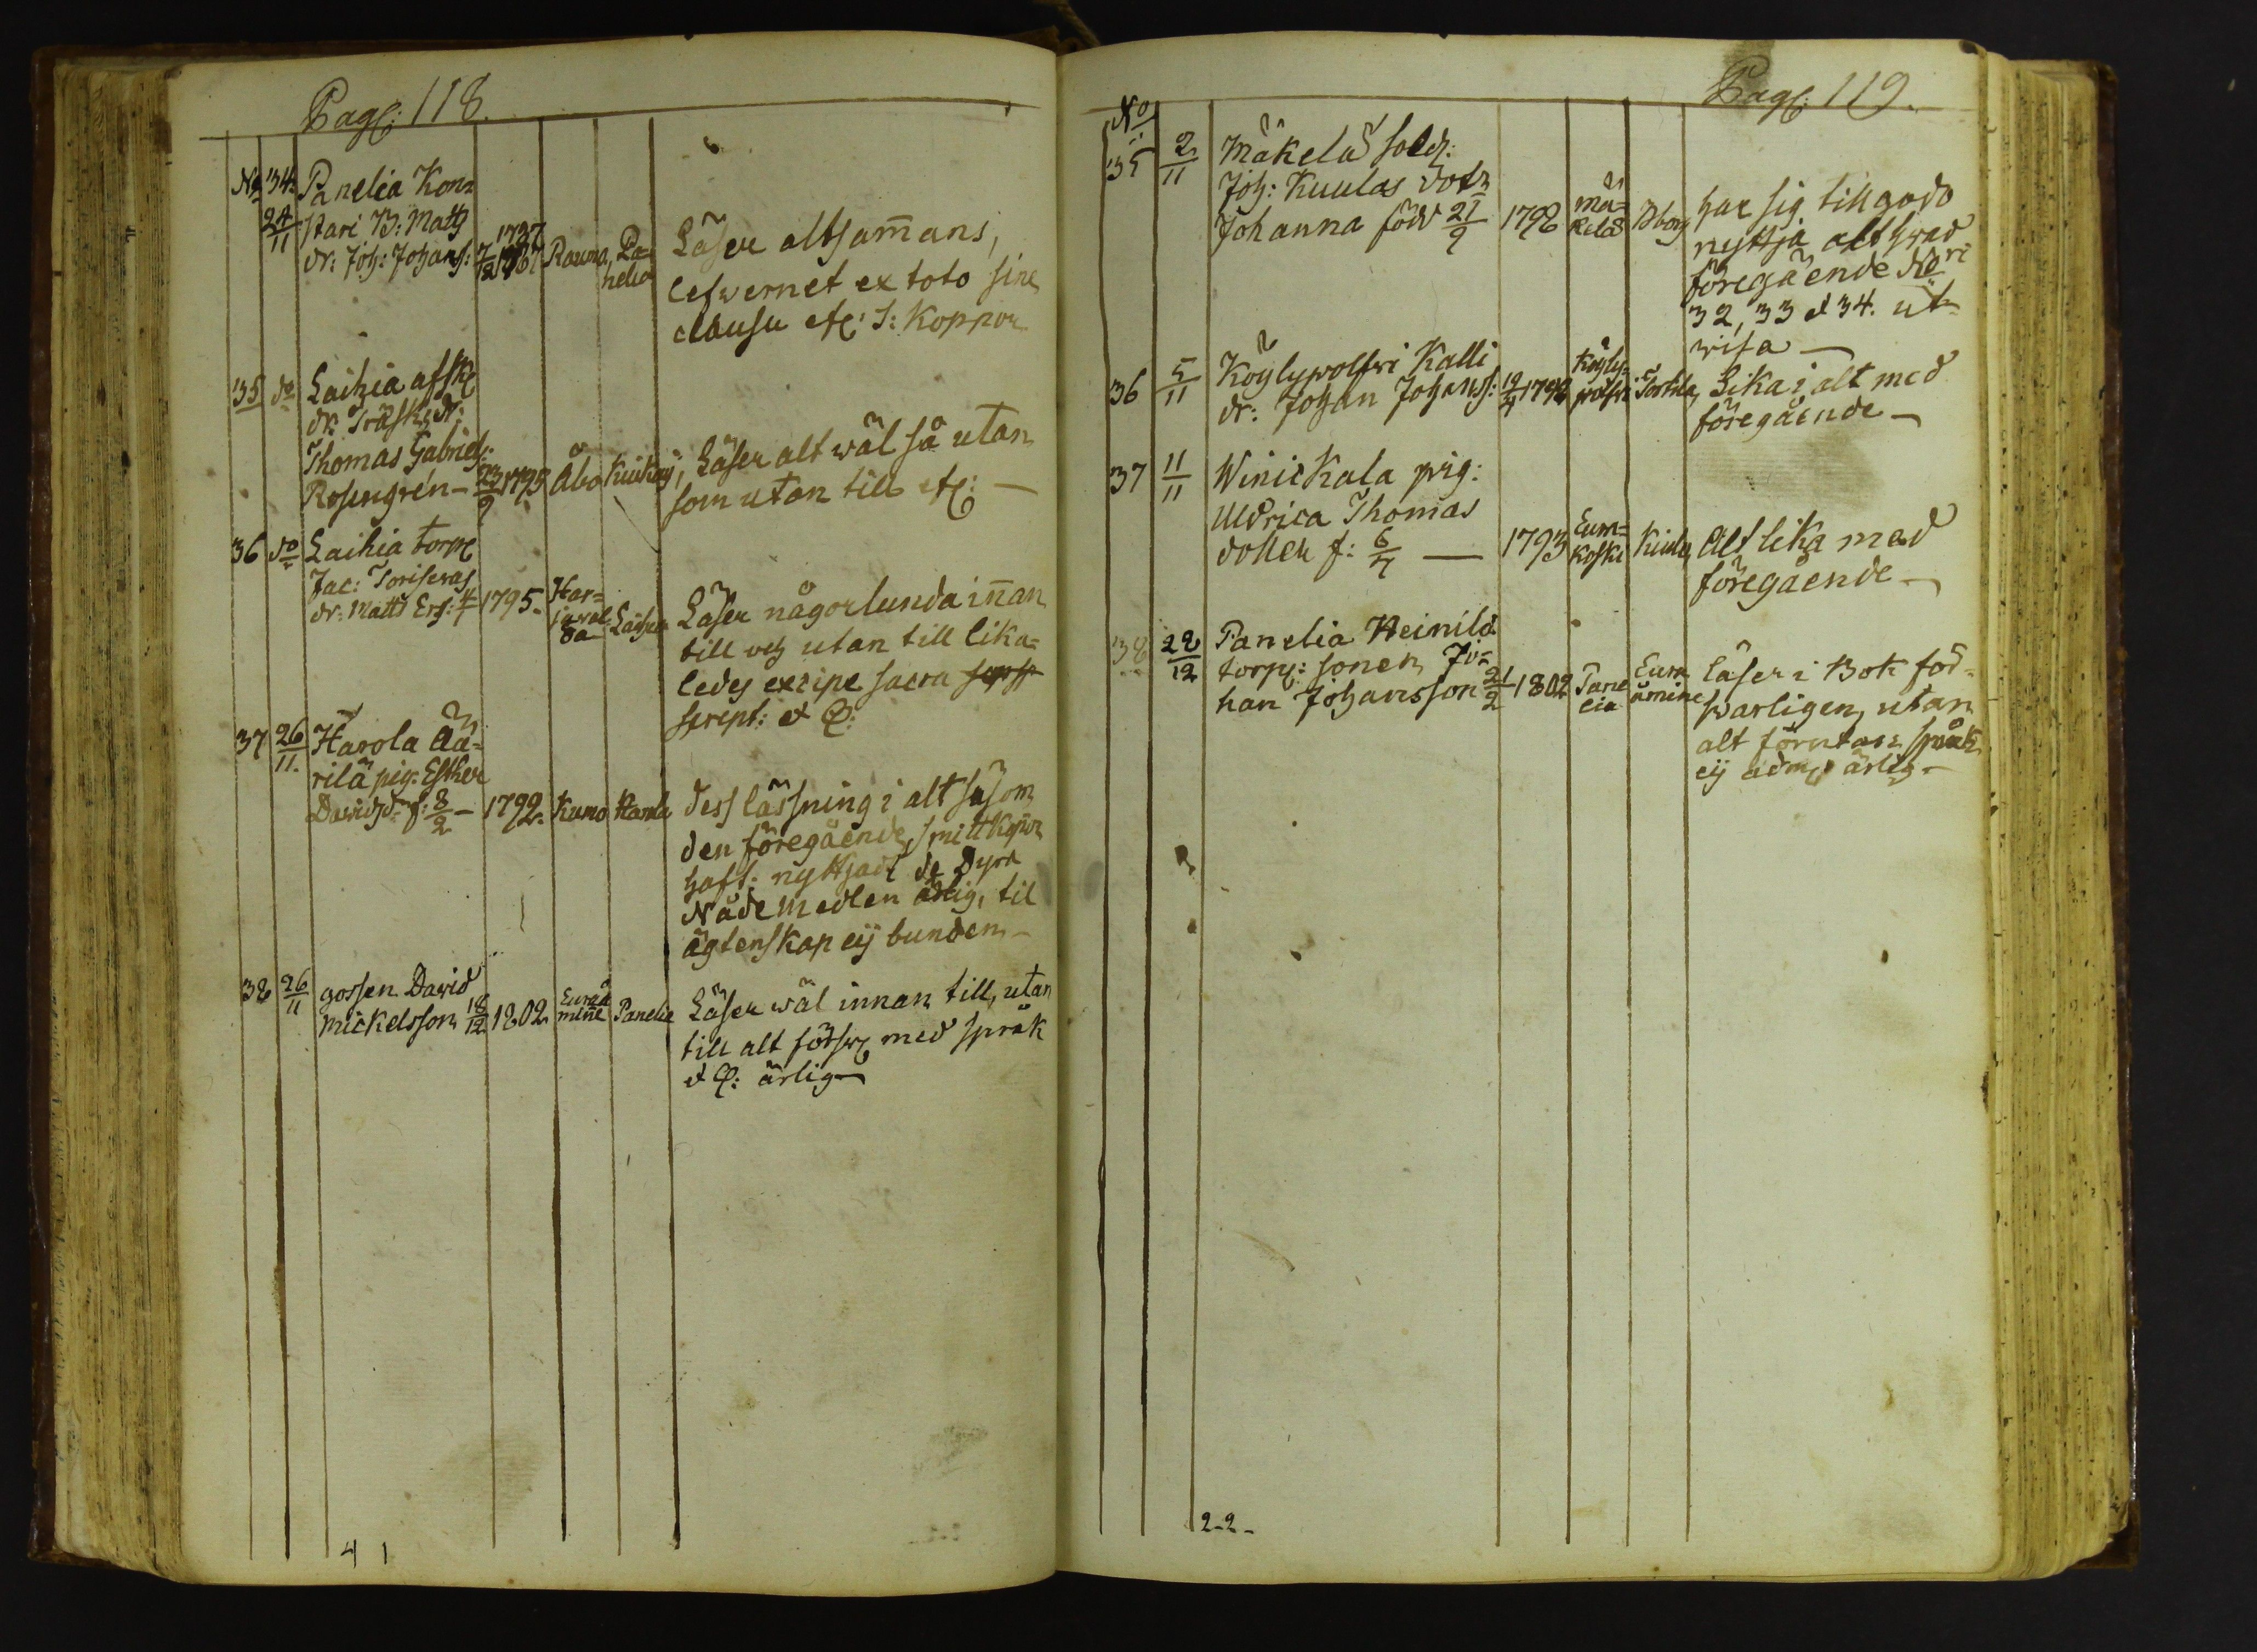 Pag: 118.
No 34. Panelia Kon=
24/11 stari B: Matts
dr: Joh: Johans: 7/12 1787 Rauma, Pa=
nelia
Läser altsam̄ans,
lefwernet ex toto sine
clausu etc: S: Koppor
35 do Laihia afsk
dr. Träsk, dr:
Thomas Gabriels:
Rosengren - 23/9 1795 Åbo
Läser alt wäl så utan
som utan till etc: —
36 do Laihia torp
Jac: Toriseras
dr: Matts Ers: 4/7 1795. Har=
jawal
da Laihia
Läser någorlunda in̄an
till och utan till lika=
ledes excipe sacra
script: et
37 26/11. Harola Aa=
rilä pig: Esther
Davidsdr f: 8/2 - 1792. Kumo Harola
dess läsning i alt såsom
den föregående, smittkoppor
haft: nyttjadt de dyra
Nådemedlen ärlig, til
ägtenskap eij bunden -
38 26/11 gossen David
Mickelsson 18/12 1802 Eurå
min̄e Panelia
Läser wäl innan till, utan
till alt förswl med språk
et ärlig
4 1
Pag: 119.
No
35 2/11 Mäkelä sold:
Joh: Kuulas dotr
Johanna född 21/9 1792 Mä=
kelä Bborg
har sig till godo
nyttja alt hwad
föregående No ri
32, 33 et 34. ut=
wisa —
36 5/11 Köylypolfwi Kalli
dr: Johan Johanss: 19/4 1794 Köyly=
polfwi Torkila
Lika i alt med
föregående —
37 11/11 Winickala pig:
Uldrica Thomas
dotter f: 6/4 — 1793 Eura=
koski
Alt lika med
föregående —
38 22/12 Panelia Heinilä
torp: sonen Jo=
han Johansson 21/2 1802 Pane
lia Eura
åmine
Läser i Bok för=
swarligen, utan
alt förutan språk
eij admo ärlig —
2-2-